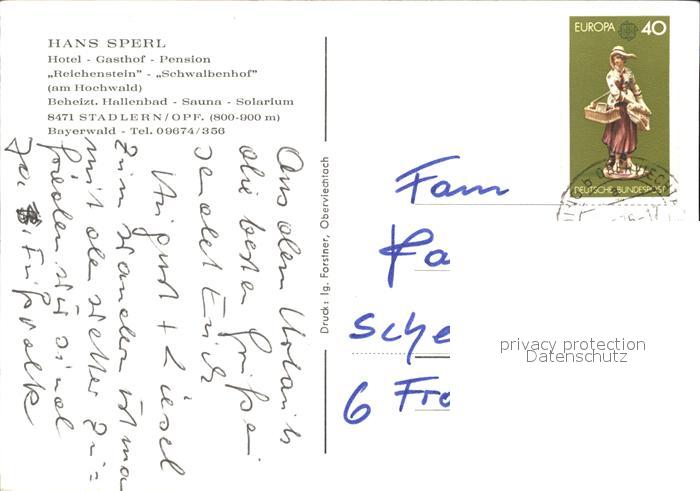 HANS SPERL
Hotel - Gasthof - Pension
„Reichenstein" - „Schwalbenhof"
(am Hochwald)
Beheizt. Hallenbad - Sauna - Solarium
8471 STADLERN/OPF. (800-900 m)
Bayerwald - Tel. 09674/356
Aus dem Urlaub
die besten Grüße
sendet Euch
August + Liesel
zum wandern ist man
mit dem wetter zu=
frieden wir sind
zu Fuß
Druck: Ig. Forstner, Oberviechtach
EUROPA 40
DEUTSCHE BUNDESPOST
Fam
Ka
Sche
6 Fra
privacy protection
Datenschutz